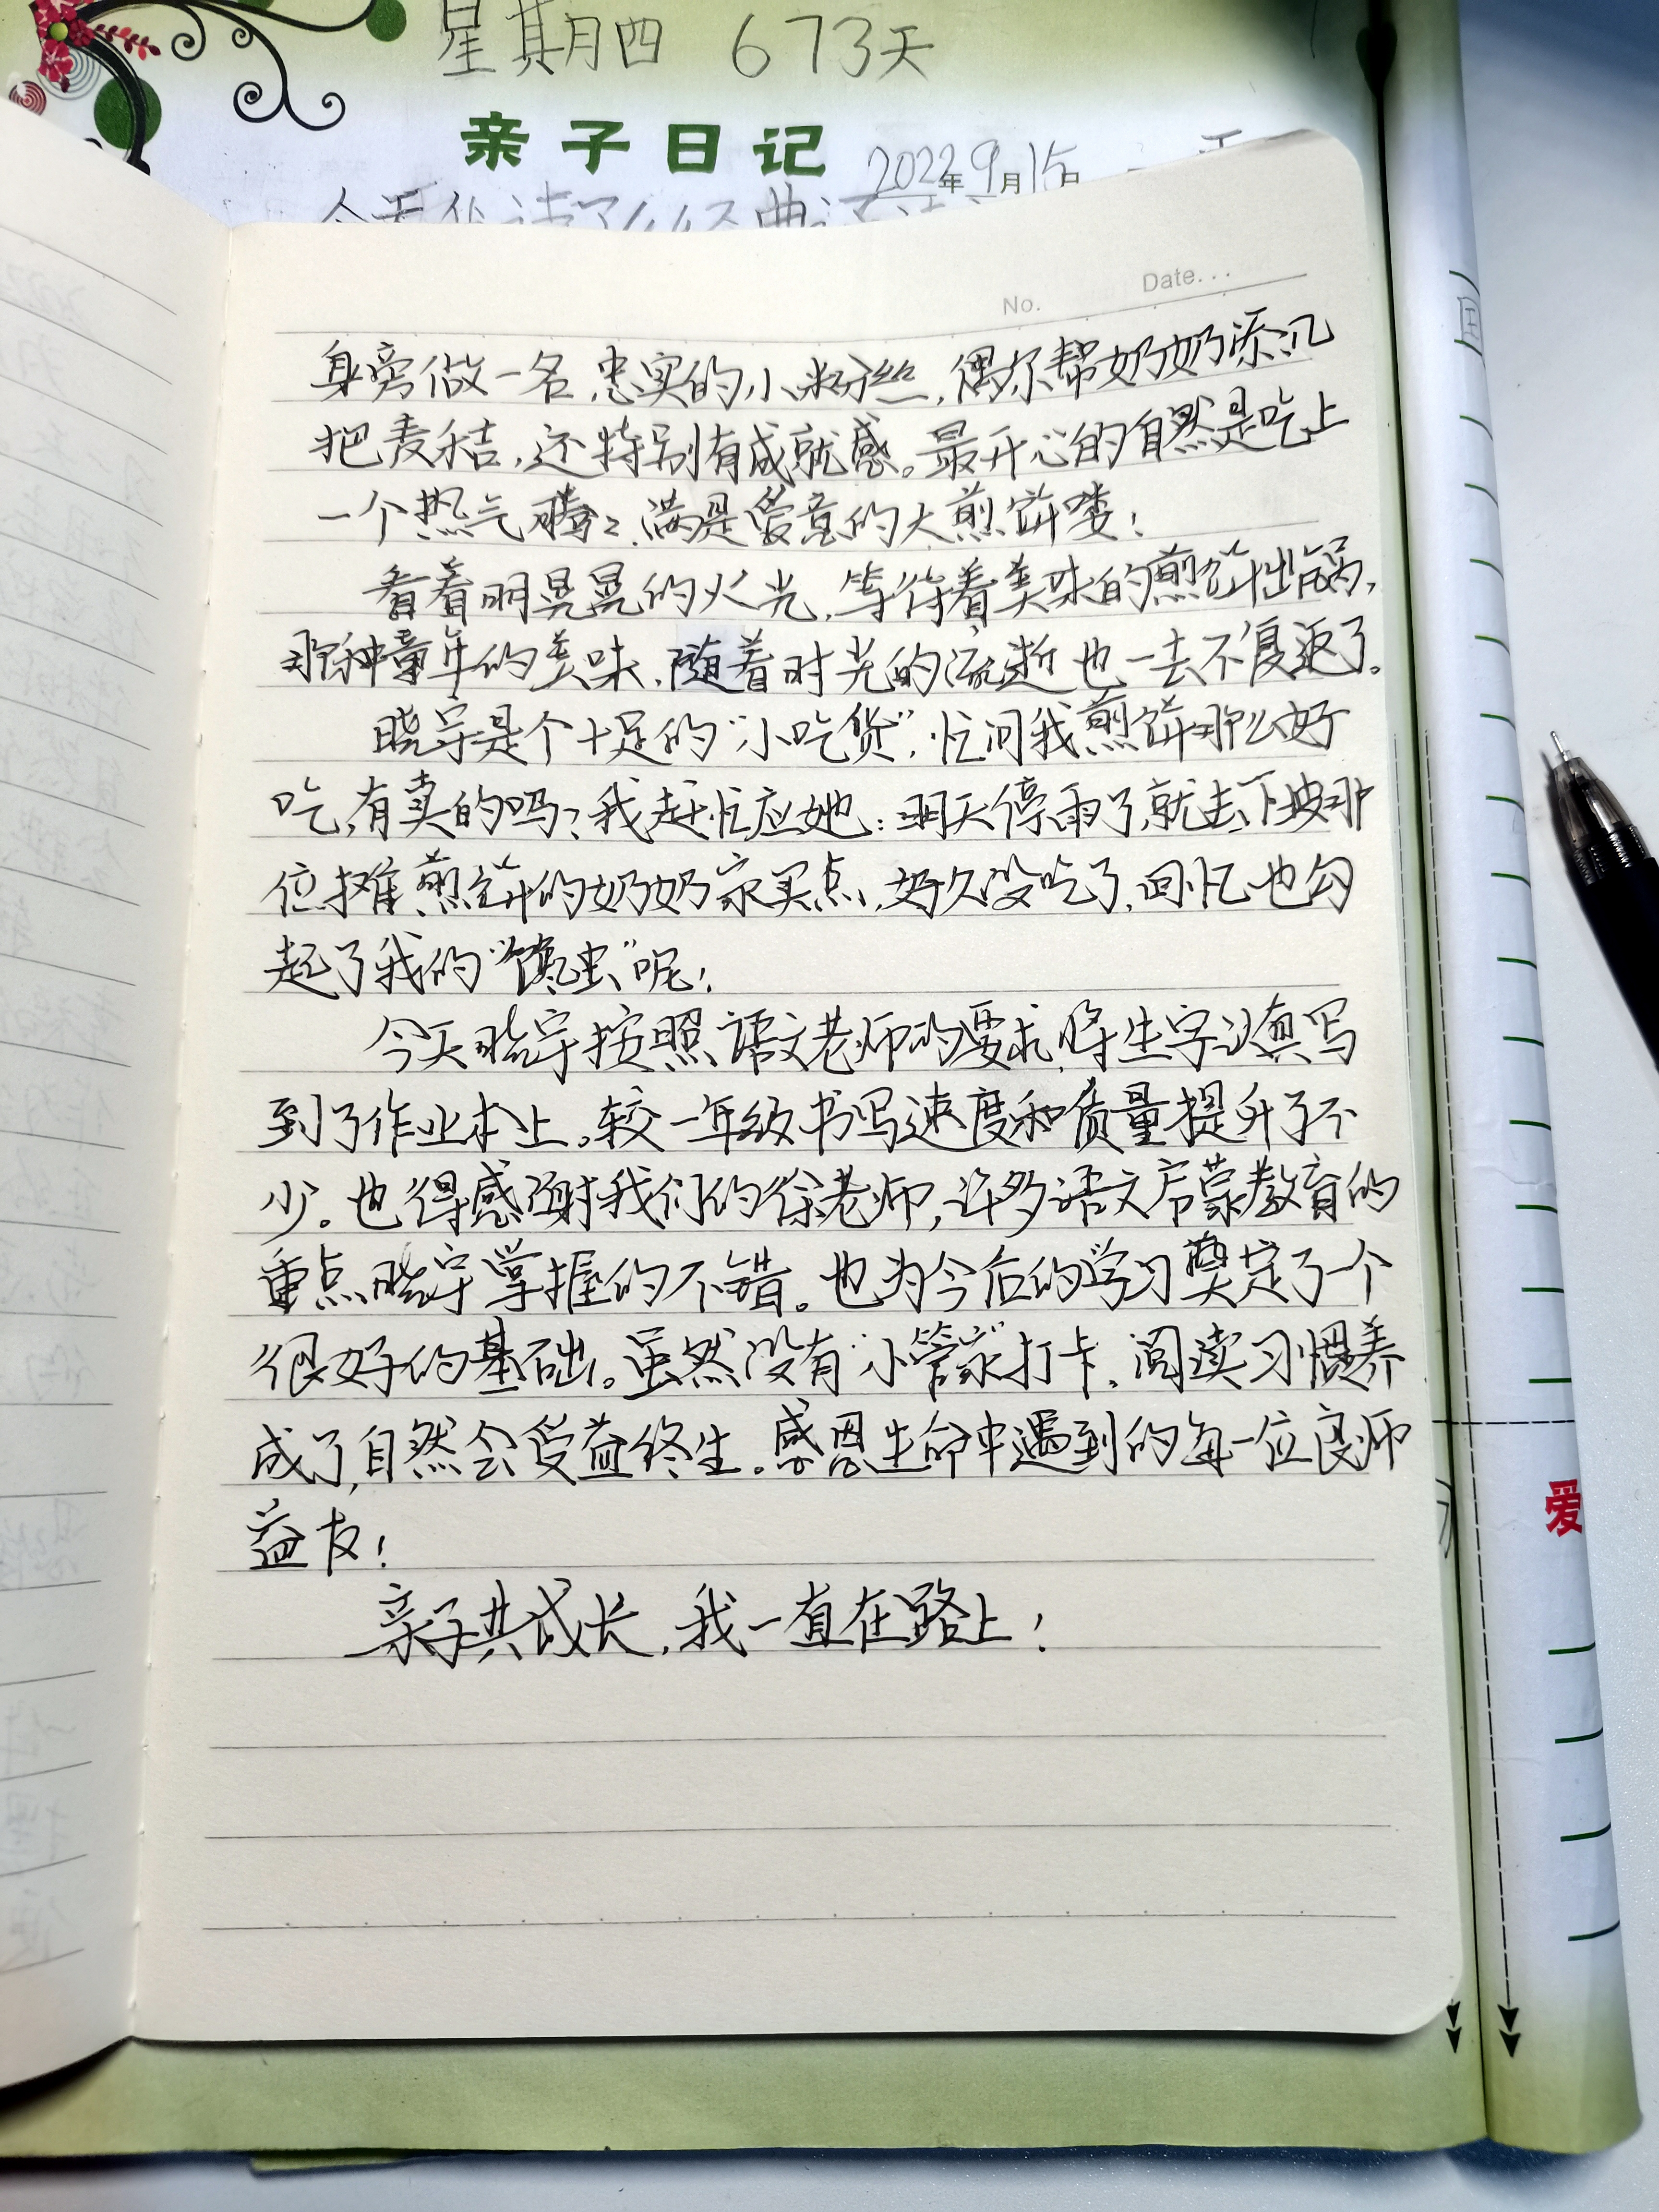 星期四 673天
亲子日记 2022年9月15日
No. Date...
身旁做一名忠实的小粉丝,偶尔帮奶奶添几
把麦秸,还特别有成就感。最开心的自然是吃上
一个热气腾腾、满是爱意的大煎饼喽!
看着明晃晃的火光,等待着美味的煎饼出锅,
那种童年的美味,随着时光的流逝也一去不复返了。
晓宇是个十足的“小吃货”,忙问我煎饼那么好
吃,有卖的吗?我赶忙应她:明天停雨了,就去下坡那
位摊煎饼的奶奶家买点,好久没吃了,回忆也勾
起了我的“馋虫”呢!
今天晓宇按照语文老师的要求,将生字认真写
到了作业本上。较一年级书写速度和质量提升了不
少。也得感谢我们的徐老师,许多语文启蒙教育的
重点晓宇掌握的不错。也为今后的学习奠定了个
很好的基础。虽然没有“小管家”打卡,阅读习惯养
成了,自然会受益终生。感恩生命中遇到的每一位良师
益友!
亲子共成长,我一直在路上!
爱